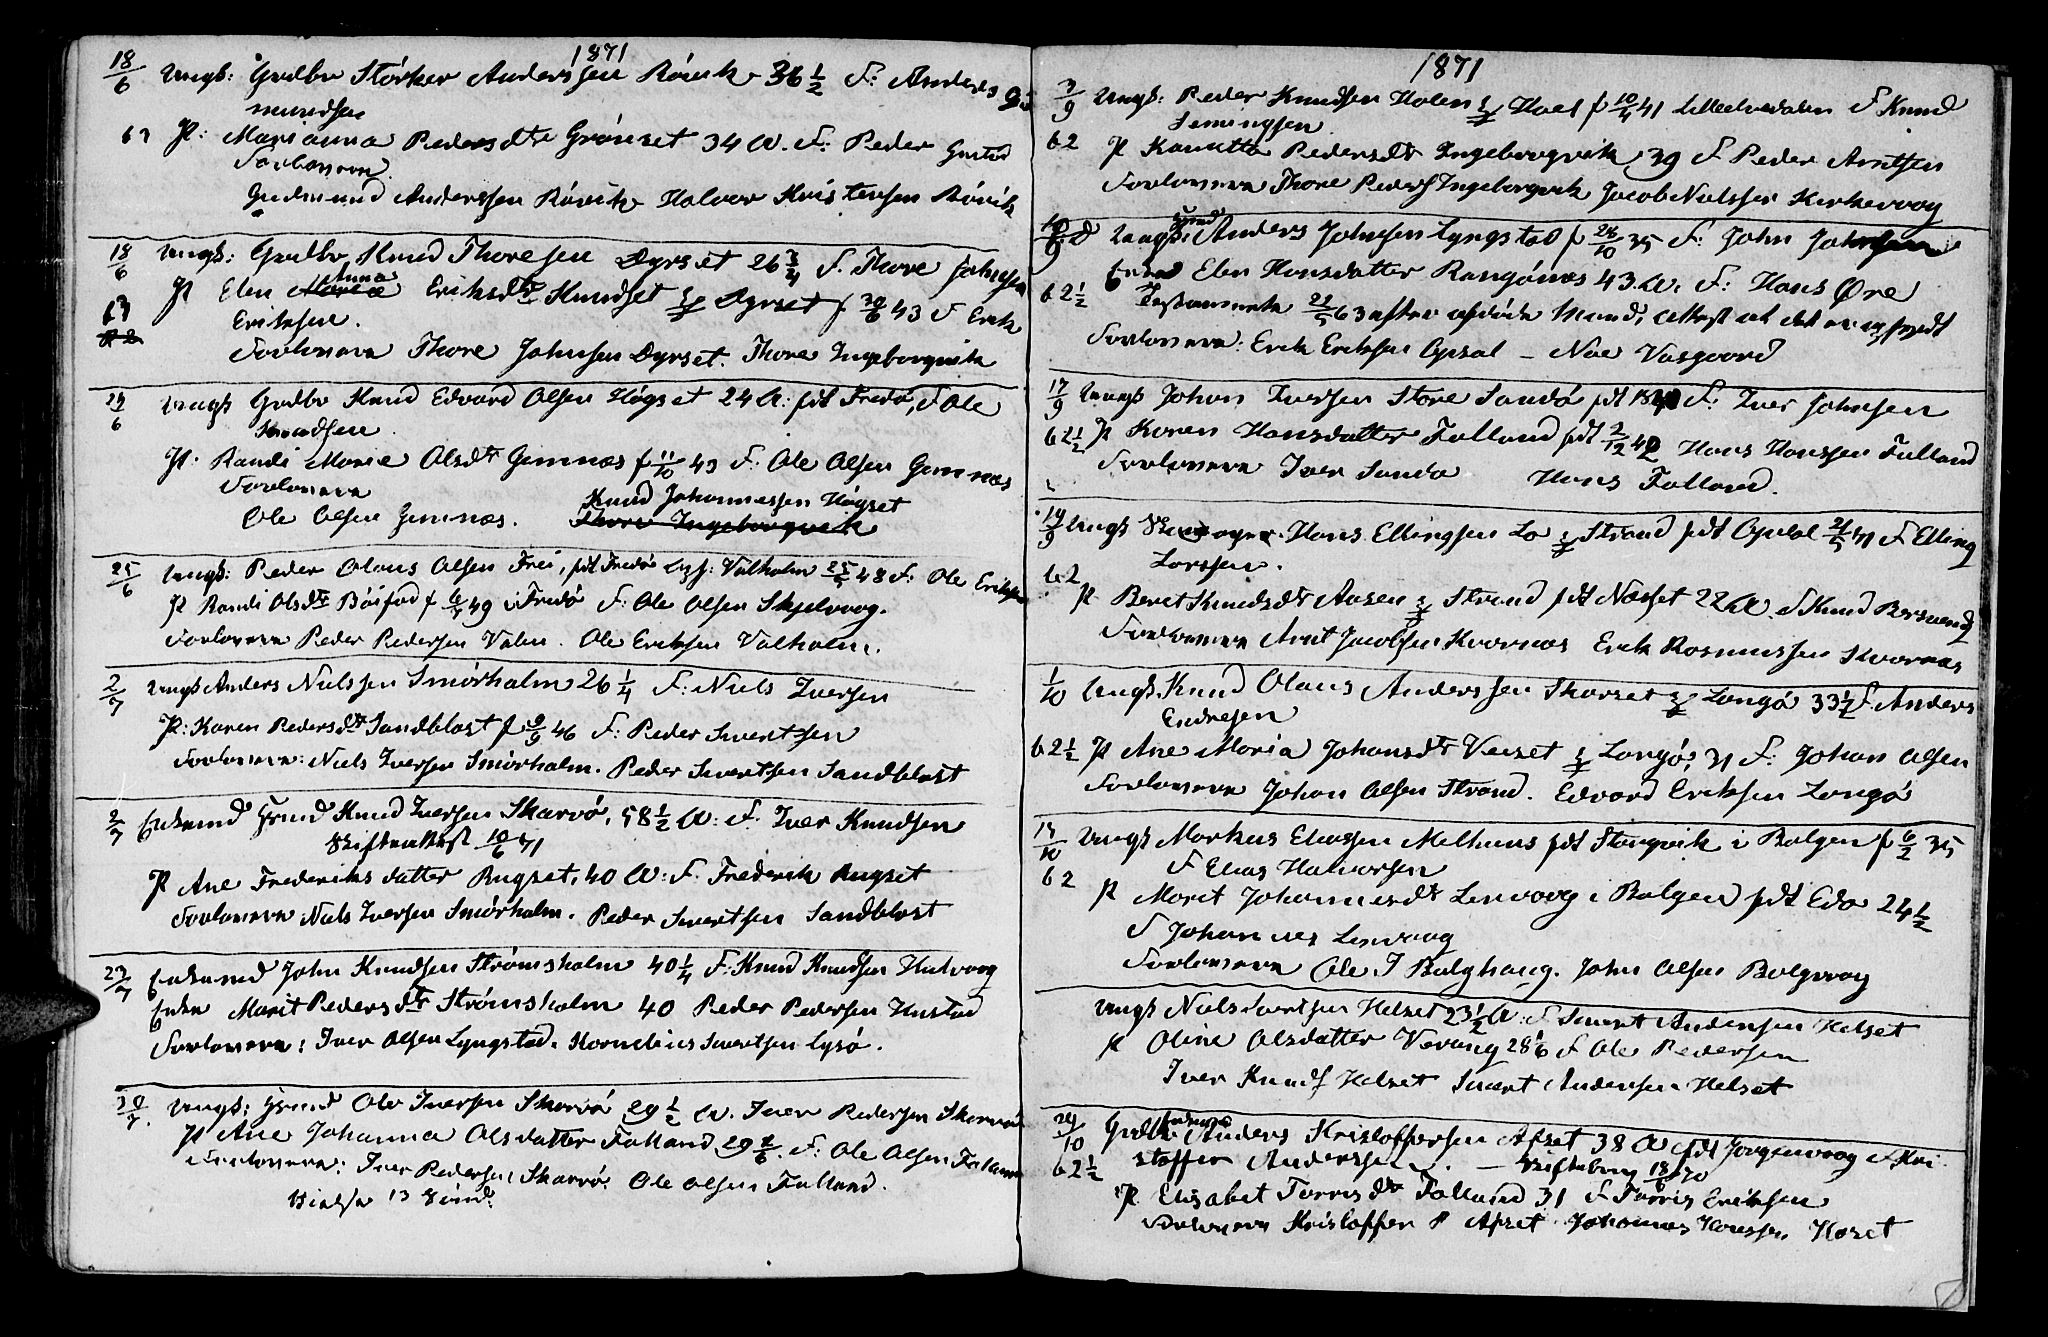 1871
18/6 Ungk: Grdbr Störker Anderssen Rövik 36 1/2 F: Anders Gud
mundsen
63 P: Marianna Pedersdtr Grönset 34 A. F: Peder Gustad
Forlovere
Gudmund Anderssen Rövik Halvor Kristensen Rövik
18/6 Ungk: Grdbr. Knud Thoresen Dyrset 26 3/4 F. Thore Johnsen
Anna
P Elen Eriksdtr Knudset Dyrset f 30/6 43 F Erik
63
Eriksen.
Forlovere Thore Johnsen Dyrset. Thore Ingeborgvik
24/6 Ungk Grdbr Knud Edvard Olsen Högset 24 A: fdt Fredö, F Ole
Knudsen
P: Randi Marie Olsdtr Gimnæs f 11/10 43 F: Ole Olsen Gimnæs
Forlovere
Knud Johannessen Högset
Ole Olsen Gimnæs. Thore Ingeborgvik
25/6 Ungk: Peder Olaus Olsen Frei, fdt Fredö Valholm 25/5 48 F: Ole Eriksen
P Randi Olsdtr Böifod f 6/7 49 i Fredö F: Ole Olsen Skjelvaag.
Forlovere Peder Pedersen Valen. Ole Eriksen Valholm.
2/7 Ungk Anders Nielssen Smörholm 26 1/4 F: Niels Iversen
P: Karen Pedersdtr Sandblost f 9/9 46 F: Peder Sivertsen
Forlovere: Niels Iversen Smörholm. Peder Sivertsen Sandblost
2/7 Enkemd Grmd Knud Iversen Skarvö, 58 1/2 A: F. Iver Knudsen
Skifteattest 10/6 71
P Ane Frederiksdatter Rugset, 40 A: F: Frederik Rugset
Forlovere Niels Iversen Smörholm. Peder Sivertsen Sandblost
23/7 Enkemd John Knudsen Strömsholm 40 1/4 F: Knud Knudsen Hulvaag
Enke Marit Pedersdtr Strömsholm 40 Peder Pedersen Hustad
Forlovere: Iver Olsen Lyngstad. Kornelius Sivertsen Lysö.
30/7. Ungk: Grmd Ole Iversen Skarvö 29 1/2 A. Iver Pedersen Skarvö
P Ane Johanna Olsdatter Falland 29 F: Ole Olsen Falland
Forlovere: Iver Pedersen Skarvö. Ole Olsen Falland.
13
1871
3/9 Ungk: Peder Knudsen Holen Hoel f 10/4 41 Lilledvedalen F Knud
Semingsen
62 P Kanutta Pedersdtr Ingeborgvik 39 F Peder Arntsen
Forlovere Thore Peders Ingeborgvik Jacob Nielssen Kirkevaag
10/9 Ungk: Anders Johnsen Lyngstad f 26/10 35 F: John Johnsen
Enke Elen Hansdatter Ranganæs 43 A. F: Hans Øre
62 1/2 Testamente 21/5 63 efter afdöde Mand, attest at det er opfyldt
Forlovere: Erik Eriksen Opsal - Noe Vasgaard
17/9 Ungk Johan Iversen Store Sandö fdt F: Iver Johnsen
62 1/2 P Karen Hansdatter Falland fdt 2/12 42 Hans Hanssen Falland
Forlovere Iver Sandö Hans Falland.
Ungk Skomager. Hans Ellingsen Lo Strand fdt Opdal 21/5 41 F Elling
Larssen.
62 P Beret Knudsdtr Aasen Strand fdt Næsset 22 A. F Knud
Forlovere Arnt Jacobsen Kvarnæs Erik Rasmussen Kvarnæs
1/10 Ungk Knud Olaus Anderssen Skarset Langö 33 1/2 F. Anders
Endresen
62 1/2 P Ane Maria Johansdtr Veiset Langö, 31 F: Johan Olsen
Forlovere Johan Olsen Strand. Edvard Eriksen Langö
15/10 Ungk Markus Eliassen Melhuus fdt Stangvik i Bolgen f 6/2 35
F Elias Halvorsen
62 P Marit Johannesdtr Lenvaag i Bolgen fdt Edø 24 1/2
F Johannes Lenvaag
Forlovere Ole J Bolghaug. John Olsen Bolgvaag
Ungk Niels Sivertsen Helset 23 1/2 A: F Sivert Andersen Helset
P Oline Olsdatter Vevang 28 1/6 F Ole Pedersen
Iver Knuds Helset Sivert Andersen Helset
29/10 Anders Kristoffersen Afset 38 A fdt Jørgenvaag F Kri
62 1/2 stoffer Anderssen. - Skiftebrev 18/6 70
P Elisabet Torrisdtr Falland 31 F Torris Eriksen
Forlovere Kristoffer P Afset Johannes Hanssen Haset